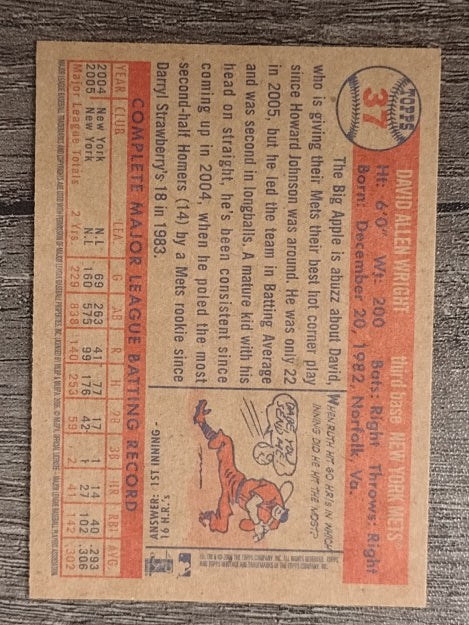 TOPPS
37
DAVID ALLEN WRIGHT third base NEW YORK METS
Ht: 6'0" Wt: 200 Bats: Right Throws: Right
Born: December 20, 1982, Norfolk, Va.
The Big Apple is abuzz about David,
who is giving their Mets their best hot corner play
since Howard Johnson was around. He was only 22
in 2005, but he led the team in Batting Average
and was second in longballs. A mature kid with his
head on straight, he's been consistent since
coming up in 2004, when he poled the most
second-half Homers (14) by a Mets rookie since
Darryl Strawberry's 18 in 1983.
WHEN RUTH HIT 60 HR's IN WHICH
INNING DID HE HIT THE MOST?
DARE YOU!
SEND ME!
ANSWER: 1ST INNING -
16 H.R.'s
COMPLETE MAJOR LEAGUE BATTING RECORD
YEAR CLUB LEA. G AB R H 2B 3B HR RBI AVG.
2004 New York N.L 69 263 41 77 17 1 14 40 .293
2005 New York N.L 160 575 99 176 42 1 27 102 .306
Major League Totals 2 Yrs. 229 838 140 253 59 2 41 142 .302